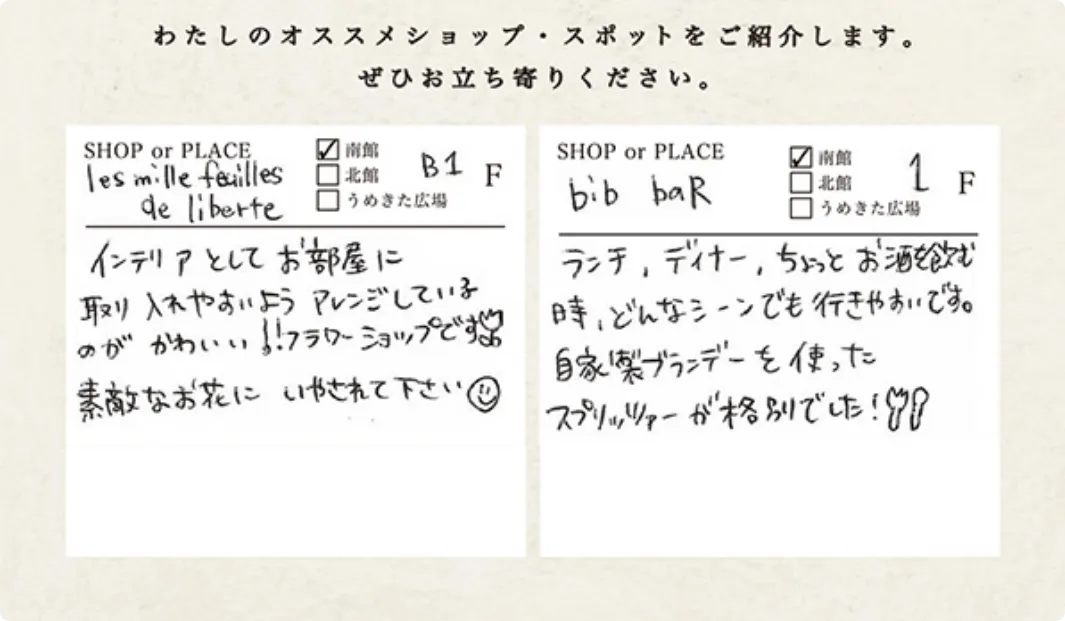 わたしのオススメショップ・スポットをご紹介します。
ぜひお立ち寄りください。
SHOP or PLACE
les mille feuilles
de liberte
☑南館
☐北館
☐うめきた広場
B1 F
インテリアとしてお部屋に
取り入れやすいよう アレンジしている
のが かわいい!!フラワーショップです
素敵なお花に いやされて下さい
SHOP or PLACE
bib baR
☑南館
☐北館
☐うめきた広場
1 F
ランチ, ディナー, ちょっとお酒を飲む
時、どんなシーンでも行きやすいです。
自家製ブランデーを使った
スプリッツァーが格別でした!